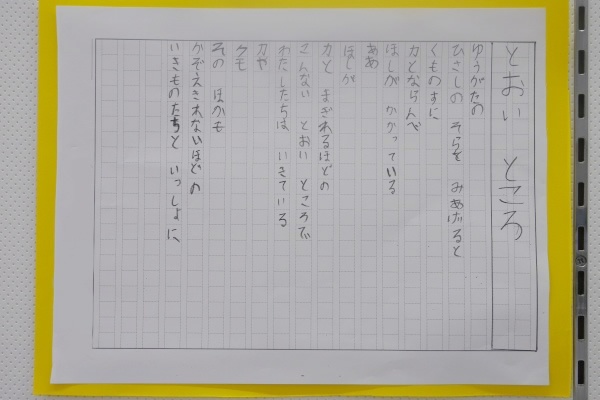 とおい ところ
ゆうがたの
ひさしの そらを みあげると
くものすに
カとならんで
ほしが かかっている
ああ
ほしが
カと まぎれるほどの
こんない とおい ところで
わたしたちは いきている
カや
クモ
その ほかも
かぞえきれないほどの
いきものたちと いっしょに